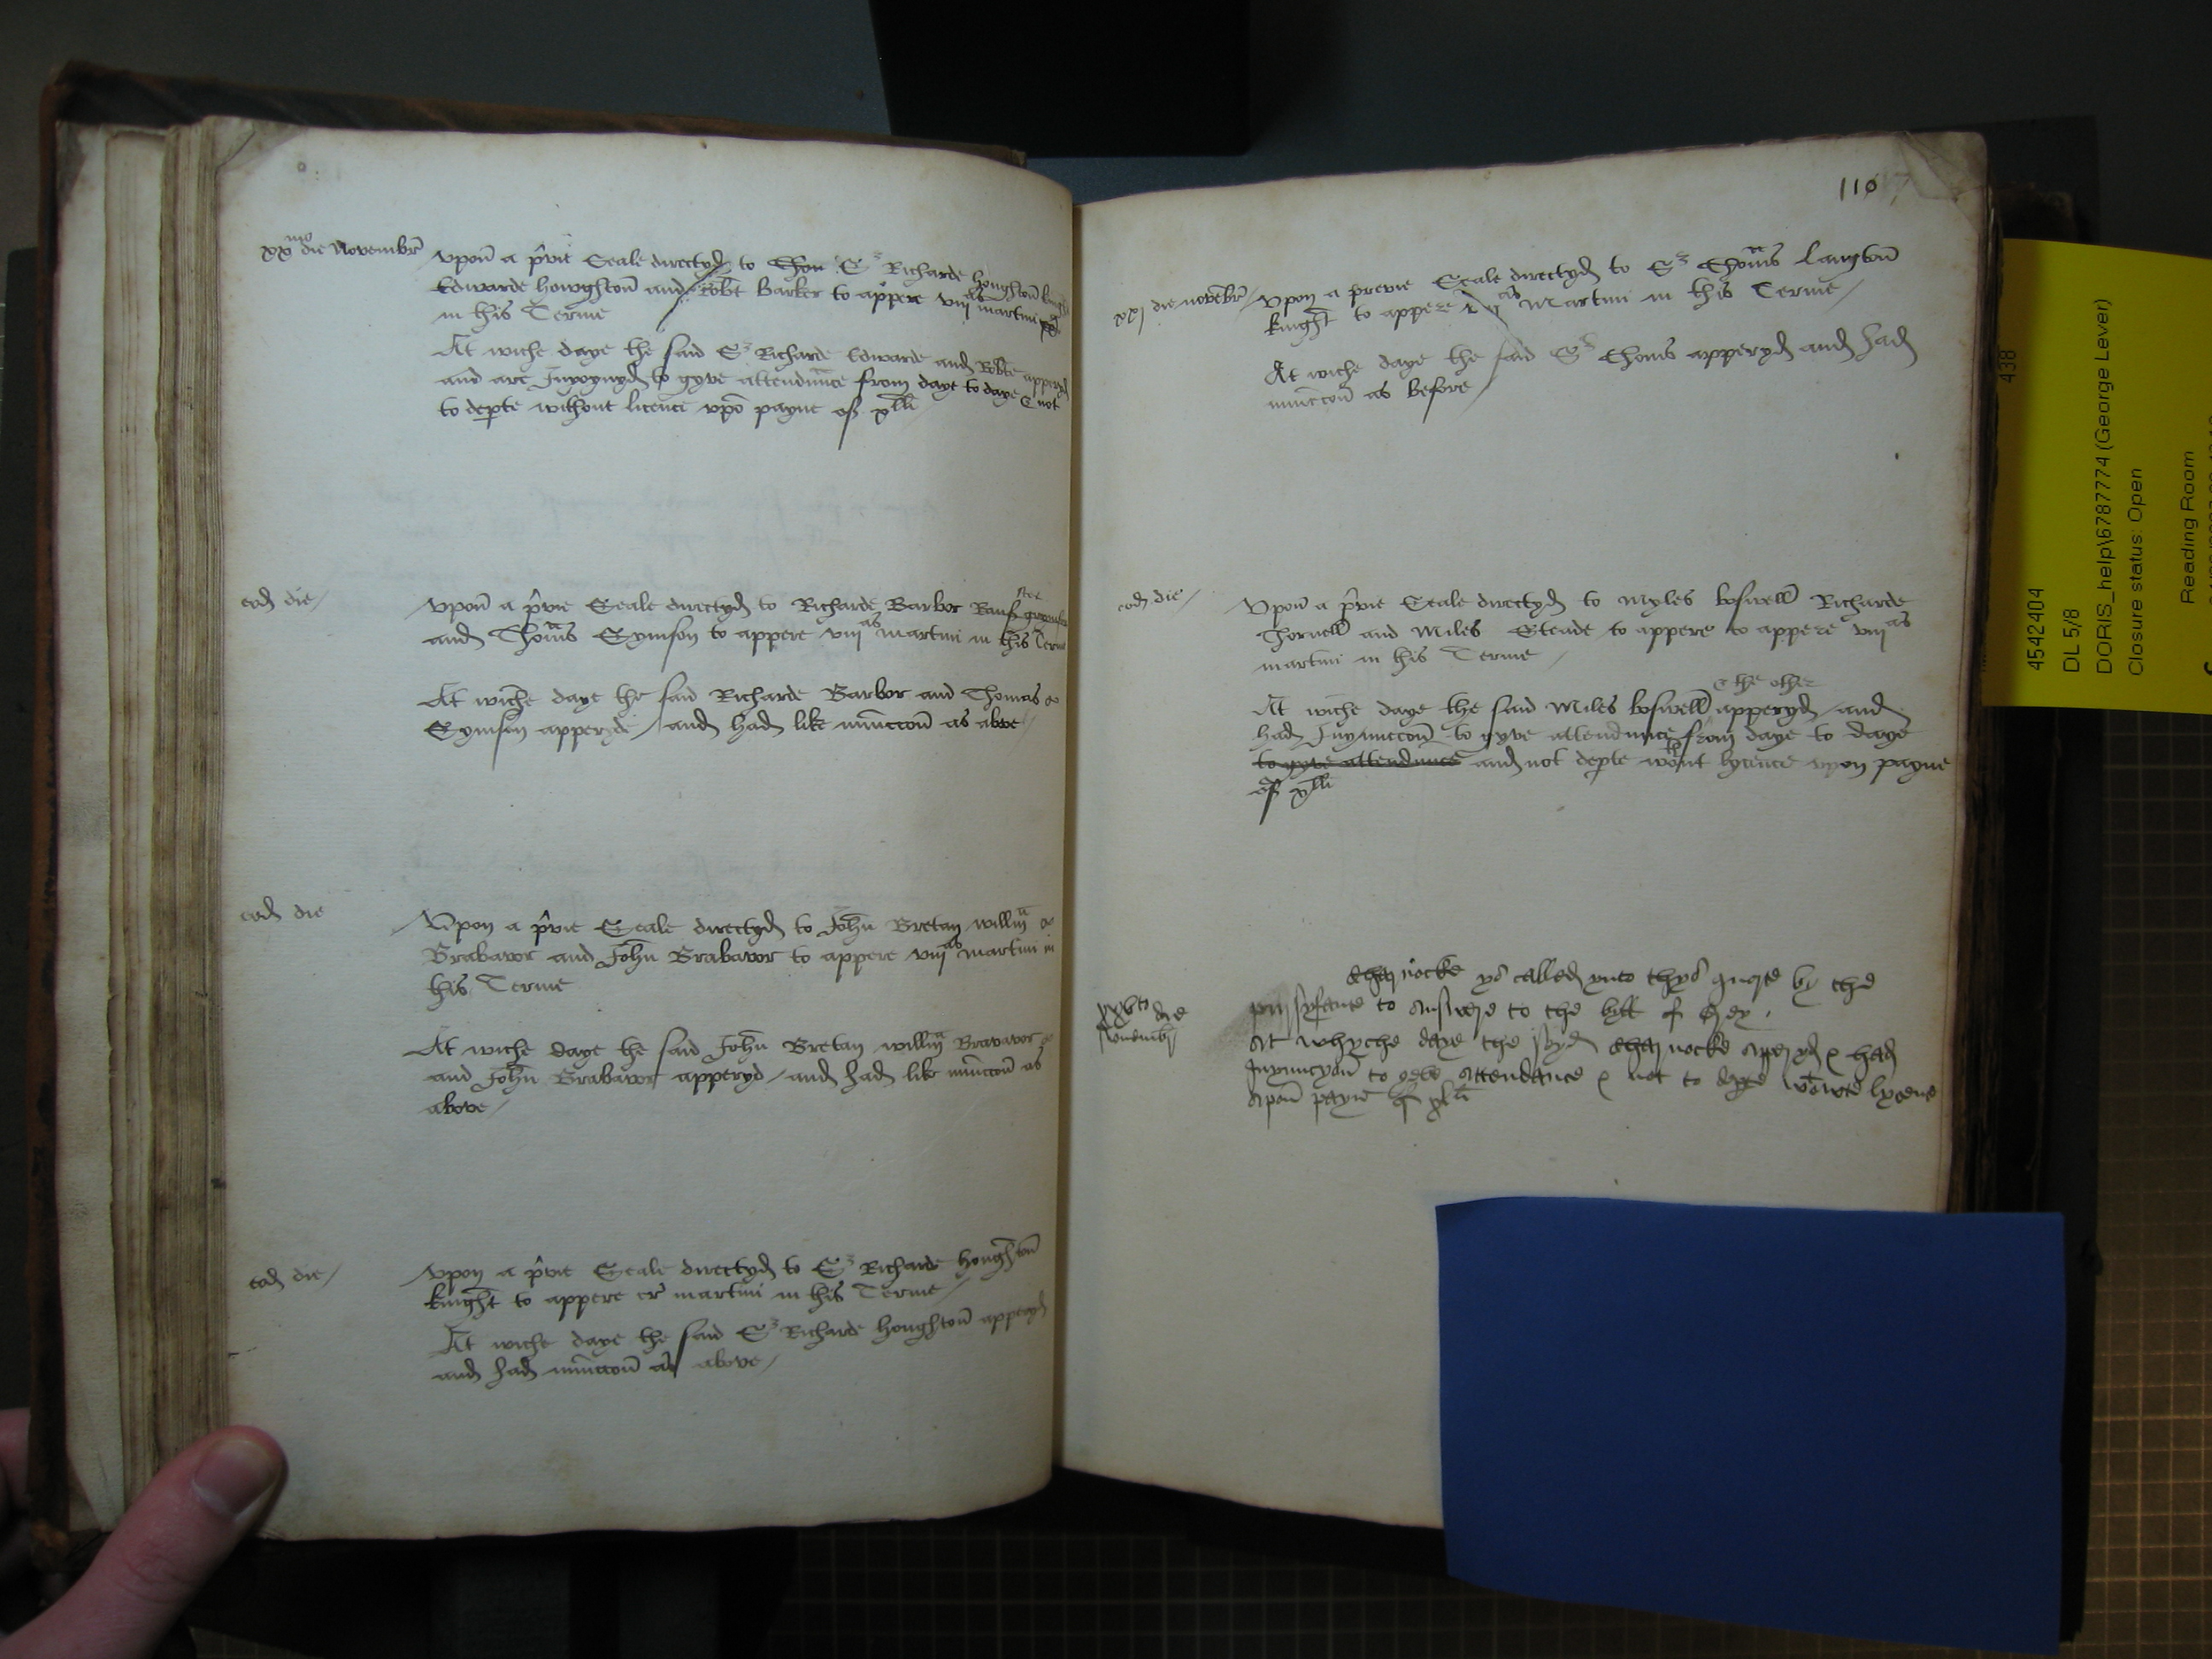 xxmo die Novembr
Vpon a pvie Seale directyd to Thon Sr Richarde Houghton knight
Edwarde howghton and Robt Barker to appere viijas martini
in this Terme
At wiche daye the said Sr Richarde Edwarde and Robte apperyd
and are Inioynyd to gyve attendunce from daye to daye & not
to depte without licence vpo payne of xlli
eod die
Vpon a pvie Seale directyd to Richarde Barbor Rauf
and Thomas Symson to appere viijas martini in this Terme
At wiche daye the said Richarde Barbor and Thomas
Symson apperyde / and had like iniuccon as above /
eod die
Vpon a pvie Seale directyd to John Bretan willm
Brabavor and John Brabavor to appere viijas martini in
this Terme
At wiche daye the said John Bretan willm Bravavor
and John Brabavor apperyd / and had like iniuccon as
above /
eod die /
Vpon a pvie Seale directyd to Sr Richarde Houghton
knight to appere cr martini in this Terme /
At wiche daye the said Sr Richarde Houghton apperyd
and had iniuccon as above /
110
xxj die novebr /
Vpon a previe Seale directyd to Sr Thoms Langton
knight to appere as Martini in this Terme /
At wiche daye the said Sr Thoms apperyd and had
iniuccon as before /
eod die /
Vpon a pvie Seale directyd to Myles boswell Richarde
Thornell and Miles Steade to appere to appere viijas
martini in this Terme /
& the other
At wiche daye the said Miles boswell apperyd / and
had Iniunccon to gyve attendunce from daye to daye
to gyve attendunce and not depte wtout lycence vpon payne
of xlli
xxvto die
Novembr
Charnocke ys called vnto thys by the
pursyfante to answere to the byll of
At whyche daye the sayd Charnocke apperyd & had
Iniuncyon to geve attendance & not to depte wtowte lycens
apon payne of xlli
4542404
438
DL 5/8
DORIS_help\6787774 (George Lever)
Closure status: Open
Reading Room